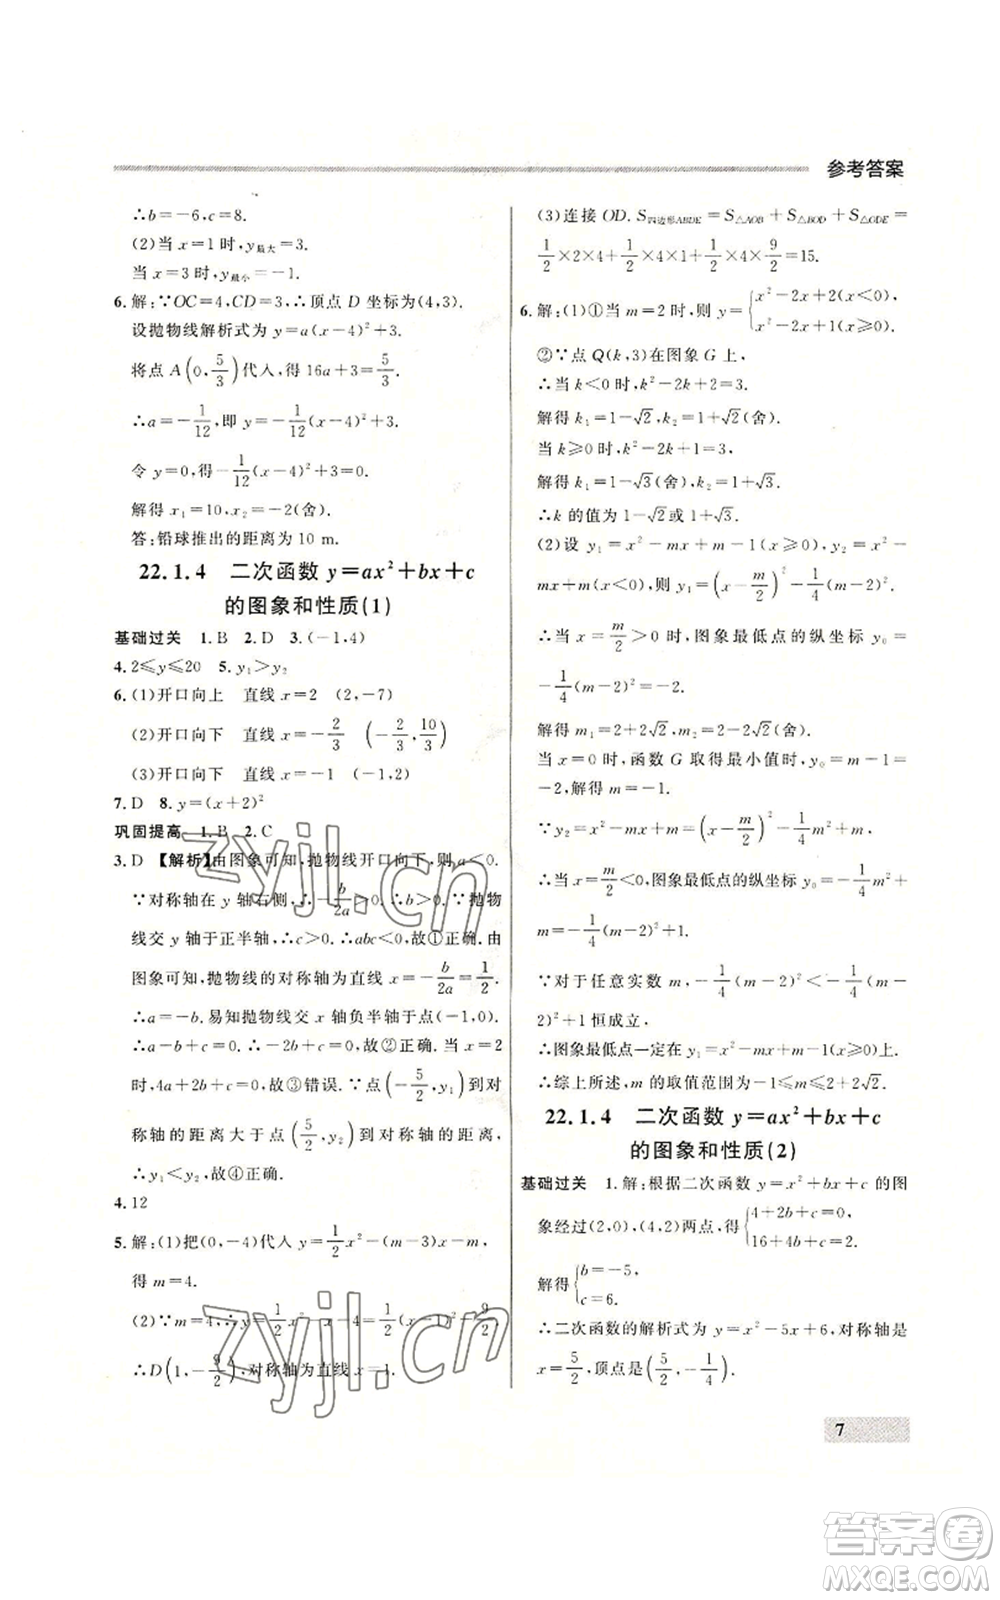 参考答案
∴b=-6,c=8.
(2)当 x=1 时,y最大=3.
当 x=3 时,y最小=-1.
6.解:∵OC=4,CD=3,∴顶点 D 坐标为(4,3).
设抛物线解析式为 y=a(x-4)²+3.
将点 A(0,5/3)代入,得 16a+3=5/3.
∴a=-1/12,即 y=-1/12(x-4)²+3.
令 y=0,得-1/12(x-4)²+3=0.
解得 x₁=10,x₂=-2(舍).
答:铅球推出的距离为 10 m.
22.1.4 二次函数 y=ax²+bx+c
的图象和性质(1)
基础过关 1.B 2.D 3.(-1,4)
4.2≤y≤20 5.y₁>y₂
6.(1)开口向上 直线 x=2 (2,-7)
(2)开口向下 直线 x=-2/3 (-2/3,10/3)
(3)开口向下 直线 x=-1 (-1,2)
7.D 8.y=(x+2)²
巩固提高 1.B 2.C
3.D 【解析】由图象可知,抛物线开口向下,则 a<0.
∵对称轴在 y 轴右侧,∴-b/2a>0.∴b>0.∵抛物
线交 y 轴于正半轴,∴c>0.∴abc<0,故①正确.由
图象可知,抛物线的对称轴为直线 x=-b/2a=1/2,
∴a=-b.易知抛物线交 x 轴负半轴于点(-1,0).
∴a-b+c=0.∴-2b+c=0,故②正确.当 x=2
时,y=4a+2b+c=0,故③错误.∵点(-5/2,y₁)到对
称轴的距离大于点(5/2,y₂)到对称轴的距离,
∴y₁<y₂,故④正确.
4.12
5.解:(1)把(0,-4)代入 y=1/2x²-(m-3)x-m,
得 m=4.
(2)∵m=4,∴y=1/2x²-x-4=1/2(x-1)²-9/2.
∴D(1,-9/2),对称轴为直线 x=1.
(3)连接 OD.S四边形ABDE=S△AOB+S△BOD+S△ODE=
1/2×2×4+1/2×4×1+1/2×2×9/2=15.
6.解:(1)①当 m=2 时,则 y={x²-2x+2(x<0),
x²-2x+1(x≥0).
②∵点 Q(k,3)在图象 G 上,
∴当 k<0 时,k²-2k+2=3.
解得 k₁=1-√2,k₂=1+√2(舍).
当 k≥0 时,k²-2k+1=3.
解得 k₁=1-√3(舍),k₂=1+√3.
∴k 的值为 1-√2或 1+√3.
(2)设 y₁=x²-mx+m-1(x≥0),y₂=x²-
mx+m(x<0),则 y₁=(x-m/2)²-1/4(m-2)².
∴当 x=m/2>0 时,图象最低点的纵坐标 y₀=
-1/4(m-2)²=-2.
解得 m₁=2+2√2,m₂=2-2√2(舍).
当 x=0 时,函数 G 取得最小值时,y₀=m-1=
-2,解得 m=-1.
∵y₂=x²-mx+m=(x-m/2)²-1/4m²+m,
∴当 x=m/2<0,图象最低点的纵坐标 y₀=-1/4m²+
m=-1/4(m-2)²+1.
∵对于任意实数 m,-1/4(m-2)²<-1/4(m-
2)²+1 恒成立,
∴图象最低点一定在 y₁=x²-mx+m-1(x≥0)上.
∴综上所述,m 的取值范围为-1≤m≤2+2√2.
22.1.4 二次函数 y=ax²+bx+c
的图象和性质(2)
基础过关 1.解:根据二次函数 y=x²+bx+c 的图
象经过(2,0),(4,2)两点,得{4+2b+c=0,
16+4b+c=2.
解得{b=-5,
c=6.
∴二次函数的解析式为 y=x²-5x+6,对称轴是
x=5/2,顶点是(5/2,-1/4).
7
zyjl.cn
zyjl.cn
答案圈
MXQE.COM